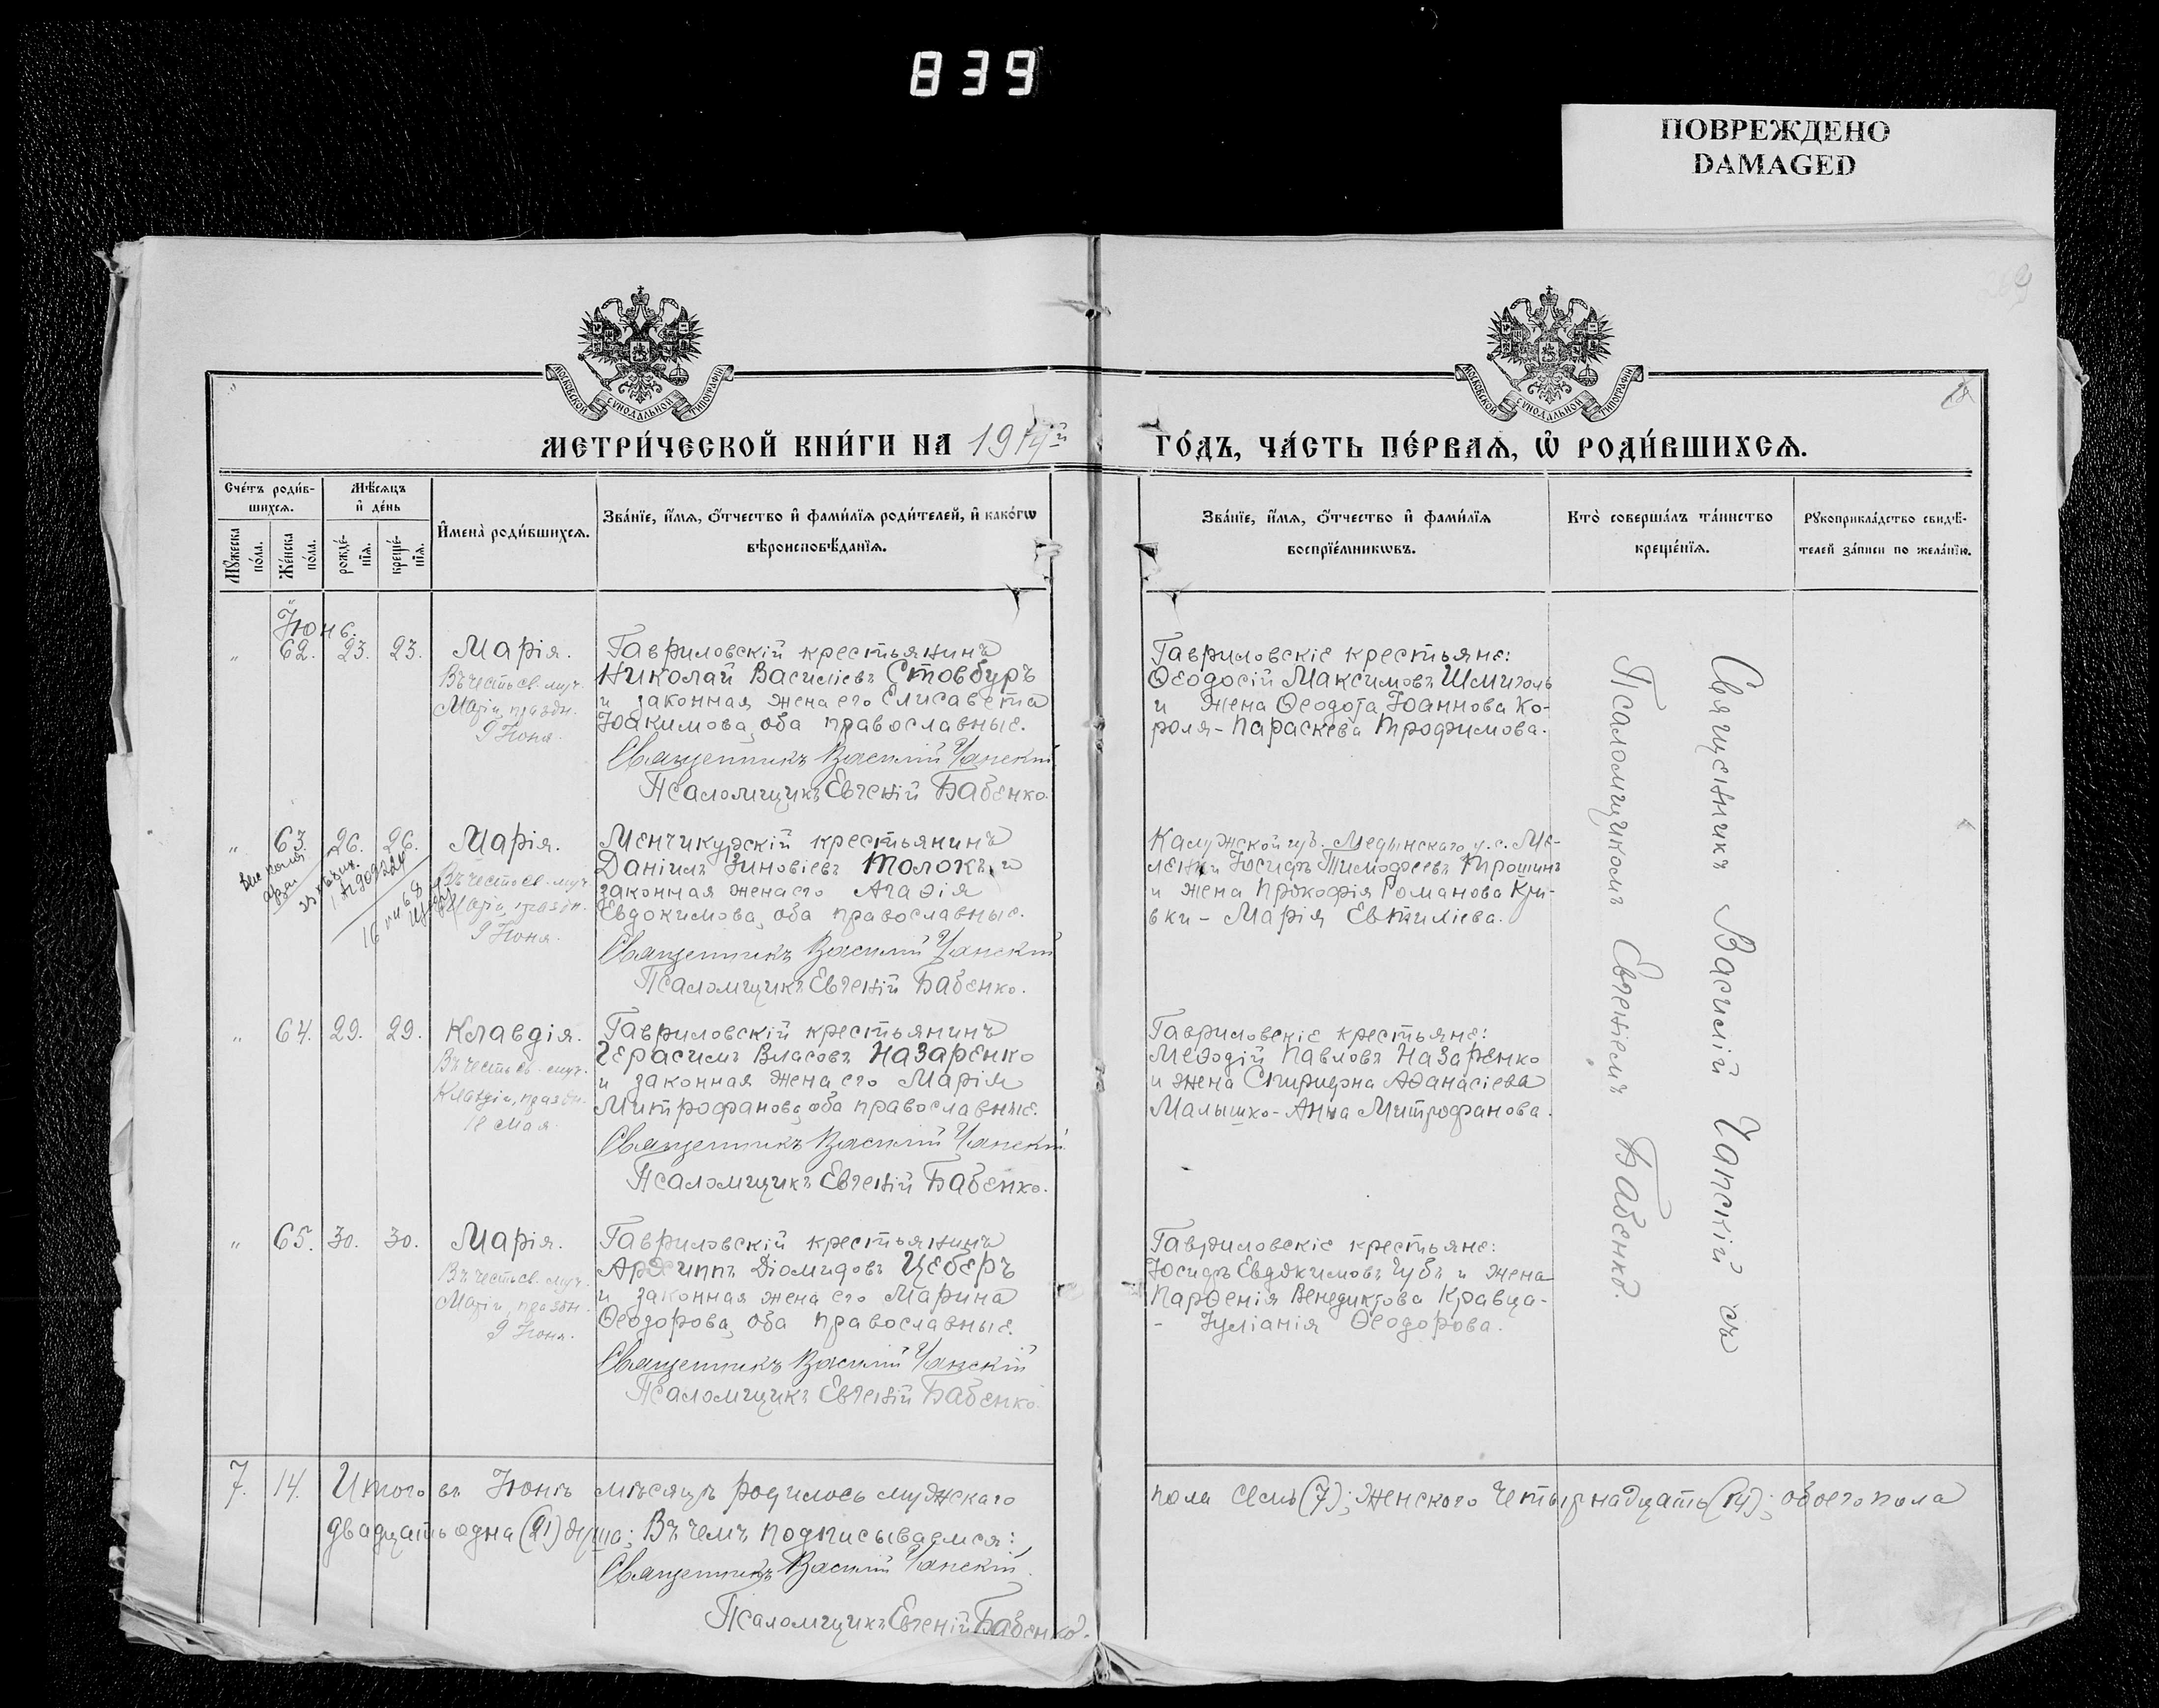 839
ПОВРЕЖДЕНО
DAMAGED
МОСКОВСКОЙ СѴНОДАЛЬНОЙ ТИПОГРАФІИ
МОСКОВСКОЙ СѴНОДАЛЬНОЙ ТИПОГРАФІИ
МЕТРИ́ЧЕСКОЙ КНИ́ГИ НА 1914й ГО́ДЪ, ЧА́СТЬ ПЕ́РВАѦ, Ѡ РОДИ́ВШИХСѦ.
Сче́тъ роди́в-
шихсѧ.
Мꙋжеска
по́ла.
Же́нска
по́ла.
Мѣ́сѧцъ
и҆ де́нь
рожде́-
нїѧ.
креще́-
нїѧ.
И҆мена̀ роди́вшихсѧ.
Зва́нїе, и҆́мѧ, ѻ҆́тчество и҆ фами́лїѧ роди́телей, и҆ како́гѡ
вѣроисповѣ́данїѧ.
Зва́нїе, и҆́мѧ, ѻ҆́тчество и҆ фами́лїѧ
воспрїе́мникѡвъ.
Кто̀ соверша́лъ та́инство
креще́нїѧ.
Рꙋкоприкла́дство свидѣ́-
телей за́писи по жела́нїю.
Іюнь.
" 62. 23. 23. Марія.
Въ честь св. муч.
Маріи, праздн.
9 Іюня.
Гавриловскій крестьянинъ
Николай Василіевъ Стовбуръ
и законная жена его Елисавета
Іоакимова, оба православные.
Священникъ Василій Чапскій
Псаломщикъ Евгеній Бабенко.
Гавриловскіе крестьяне:
Ѳеодосій Максимовъ Шмиголь
и жена Ѳеодота Іоаннова Ко-
роля - Параскева Трофимова.
" 63. 26. 26. Марія.
Въ честь св. муч.
Маріи, праздн.
9 Іюня.
Менчикурскій крестьянинъ
Даніилъ Зиновіевъ Толокъ, и
законная жена его Агаѳія
Евдокимова, оба православные.
Священникъ Василій Чапскій
Псаломщикъ Евгеній Бабенко.
Калужской губ. Медынскаго у. с. Ме-
Іосифъ Тимофеевъ Трошинъ
и жена Прокофія Романова Кри-
вки - Марія Евтиліева.
" 64. 29. 29. Клавдія.
Въ честь св. муч.
Клавдіи, праздн.
18 Мая.
Гавриловскій крестьянинъ
Герасимъ Власовъ Назаренко
и законная жена его Марія
Митрофанова, оба православные.
Священникъ Василій Чапскій
Псаломщикъ Евгеній Бабенко.
Гавриловскіе крестьяне:
Меѳодій Павловъ Назаренко
и жена Спиридона Аѳанасіева
Малышко - Анна Митрофанова.
" 65. 30. 30. Марія.
Въ честь св. муч.
Маріи, праздн.
9 Іюня.
Гавриловскій крестьянинъ
Архиппъ Діомидовъ Цеберъ
и законная жена его Марина
Ѳеодорова, оба православные.
Священникъ Василій Чапскій
Псаломщикъ Евгеній Бабенко.
Гавриловскіе крестьяне:
Іосифъ Евдокимовъ Губъ и жена
Парѳенія Венедиктова Кравца -
- Іуліанія Ѳеодорова.
Священникъ Василій Чапскій съ
Псаломщикомъ Евгеніемъ Бабенко.
7. 14. Итого въ Іюнѣ мѣсяцѣ родилось мужскаго пола семь (7); женскаго четырнадцать (14); обоего пола
двадцать одна (21) душа; Въ чемъ подписываемся:
Священникъ Василій Чапскій.
Псаломщикъ Евгеній Бабенко.